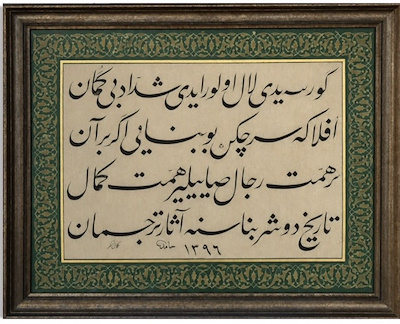 گورسیدی لال اولورایدی شداد بی گمان
افلاکه سر چکن بو بنایی اگر بر آن
همت رجال همت کمال
تاریخ دوشر بناسنه آثار ترجمان
١٣٩٦